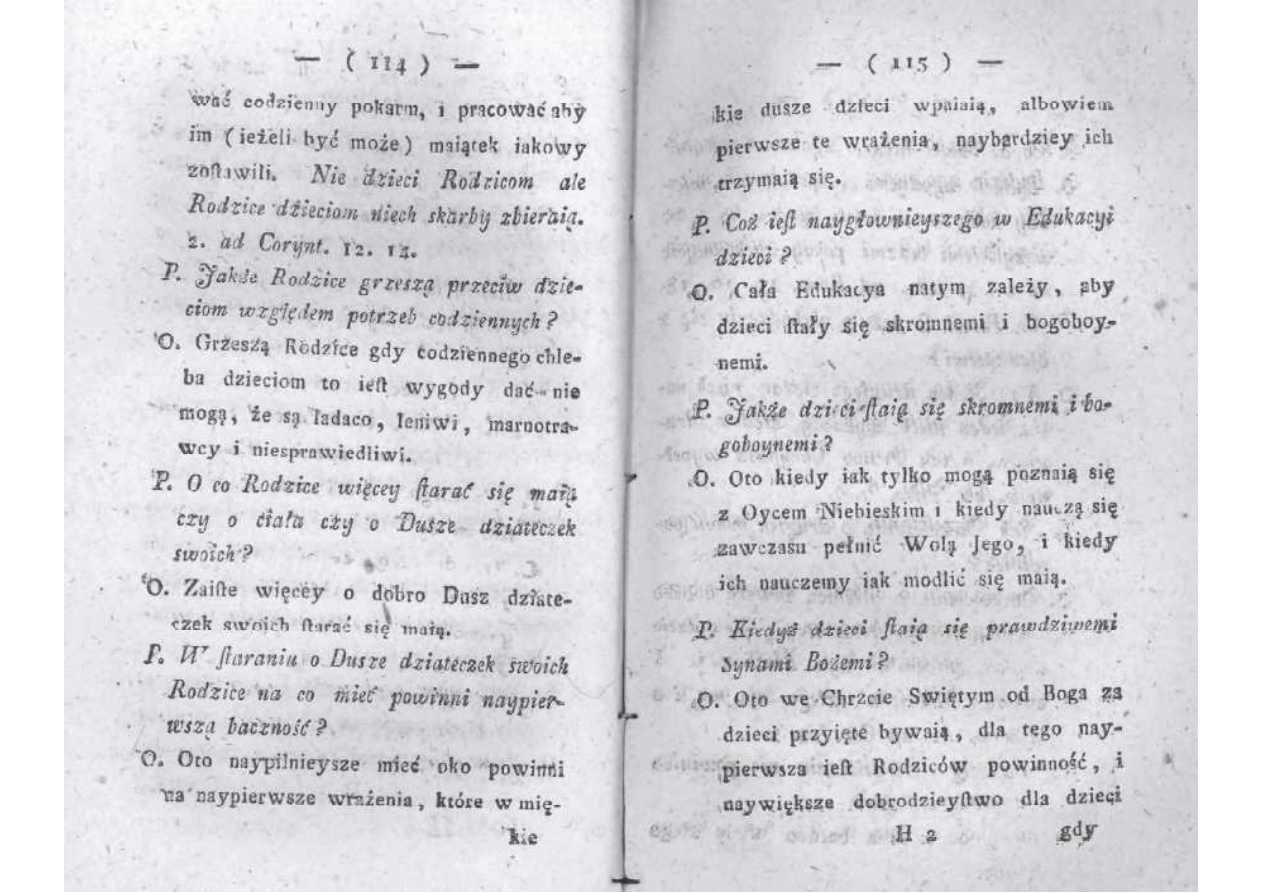 — ( 114 ) —
wać codzienny pokarm, i pracować aby
im ( ieżeli być może ) maiątek iakowy
zoſtawili. Nie dzieci Rodzicom ale
Rodzice dzieciom niech skarby zbieraią.
2. ad Corynt. 12. 14.
P. Jakże Rodzice grzeszą przeciw dzie-
ciom względem potrzeb codziennych?
O. Grzeszą Rodzice gdy codziennego chle-
ba dzieciom to ieſt wygody dać nie
mogą, że są ladaco, leniwi, marnotra-
wcy i niesprawiedliwi.
P. O co Rodzice więcey ſtarać się maią
czy o ciała czy o Dusze dziateczek
swoich?
O. Zaiſte więcey o dobro Dusz dziate-
czek swoich ſtarać się maią.
P. W ſtaraniu o Dusze dziateczek swoich
Rodzice na co mieć powinni naypier-
wszą baczność?
O. Oto naypilnieysze mieć oko powinni
na naypierwsze wrażenia, które w mię-
kie
— ( 115 ) —
kie dusze dzieci wpaiaią, albowiem
pierwsze te wrażenia, naybardziey ich
trzymaią się.
P. Coż ieſt naygłownieyszego w Edukacyi
dzieci?
O. Cała Edukacya natym zależy, aby
dzieci ſtały się skromnemi i bogoboy-
nemi.
P. Jakże dzieci ſtaią się skromnemi i bo-
goboynemi?
O. Oto kiedy iak tylko mogą poznaią się
z Oycem Niebieskim i kiedy nauczą się
zawczasu pełnić Wolą Jego, i kiedy
ich nauczemy iak modlić się maią.
P. Kiedyż dzieci ſtaią się prawdziwemi
Synami Bożemi?
O. Oto we Chrzcie Swiętym od Boga za
dzieci przyięte bywaią, dla tego nay-
pierwsza ieſt Rodziców powinność, i
naywiększe dobrodzieyſtwo dla dzieci
H 2 gdy